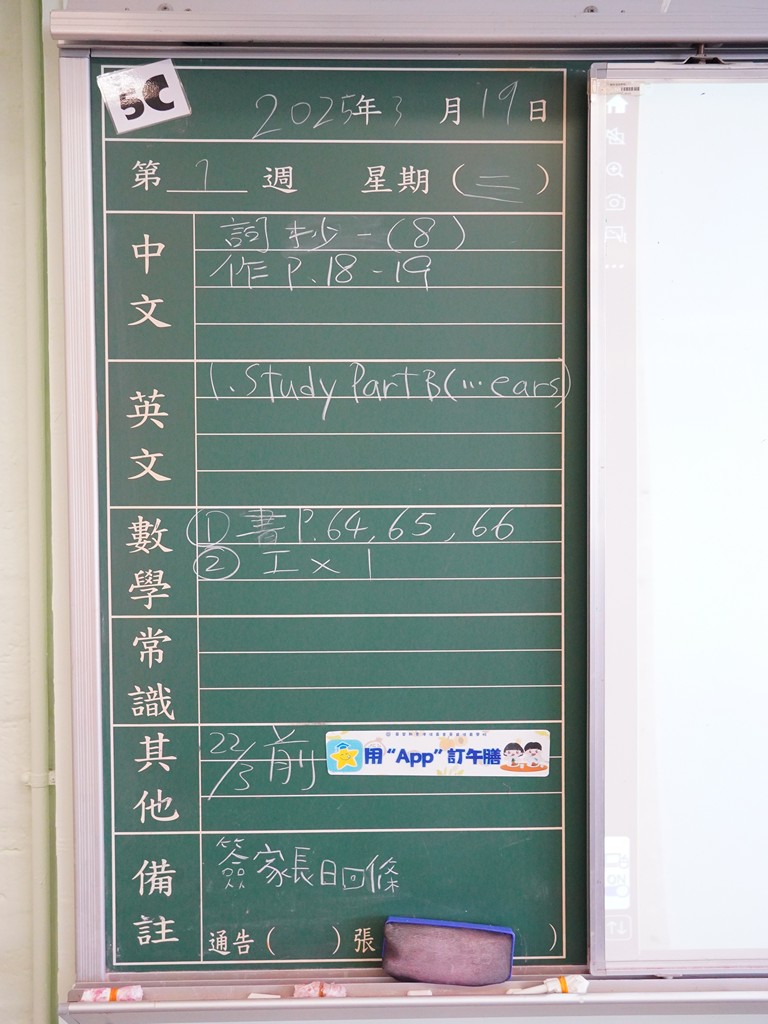 5C
2025年3月19日
第 1 週 星期(三)
中文
詞 抄 - (8)
作 P.18-19
英文
1. Study Part B (... ears)
數學
① 書 P.64, 65, 66
② 工 × 1
常識
其他
22/3 前
用“App”訂午膳
備註
簽家長日回條
通告( )張 )
ON